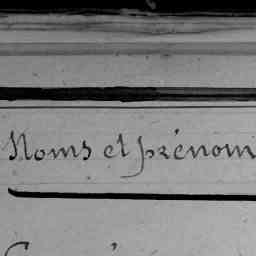 Noms et prénom